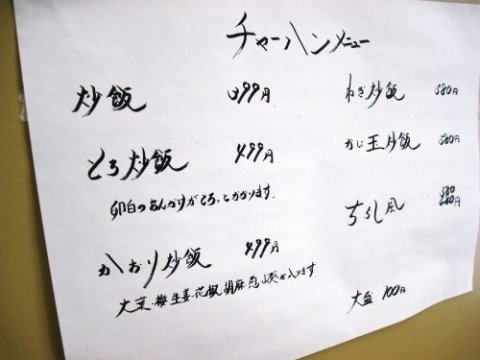 チャーハンメニュー
炒飯 399円
とろ炒飯 499円
卵白のあんかけがとろーとかかります。
かおり炒飯 499円
大葉・梅・生姜・花椒・胡麻
が入ります
ねぎ炒飯 580円
かに玉炒飯 580円
ちらし風
大盛 100円